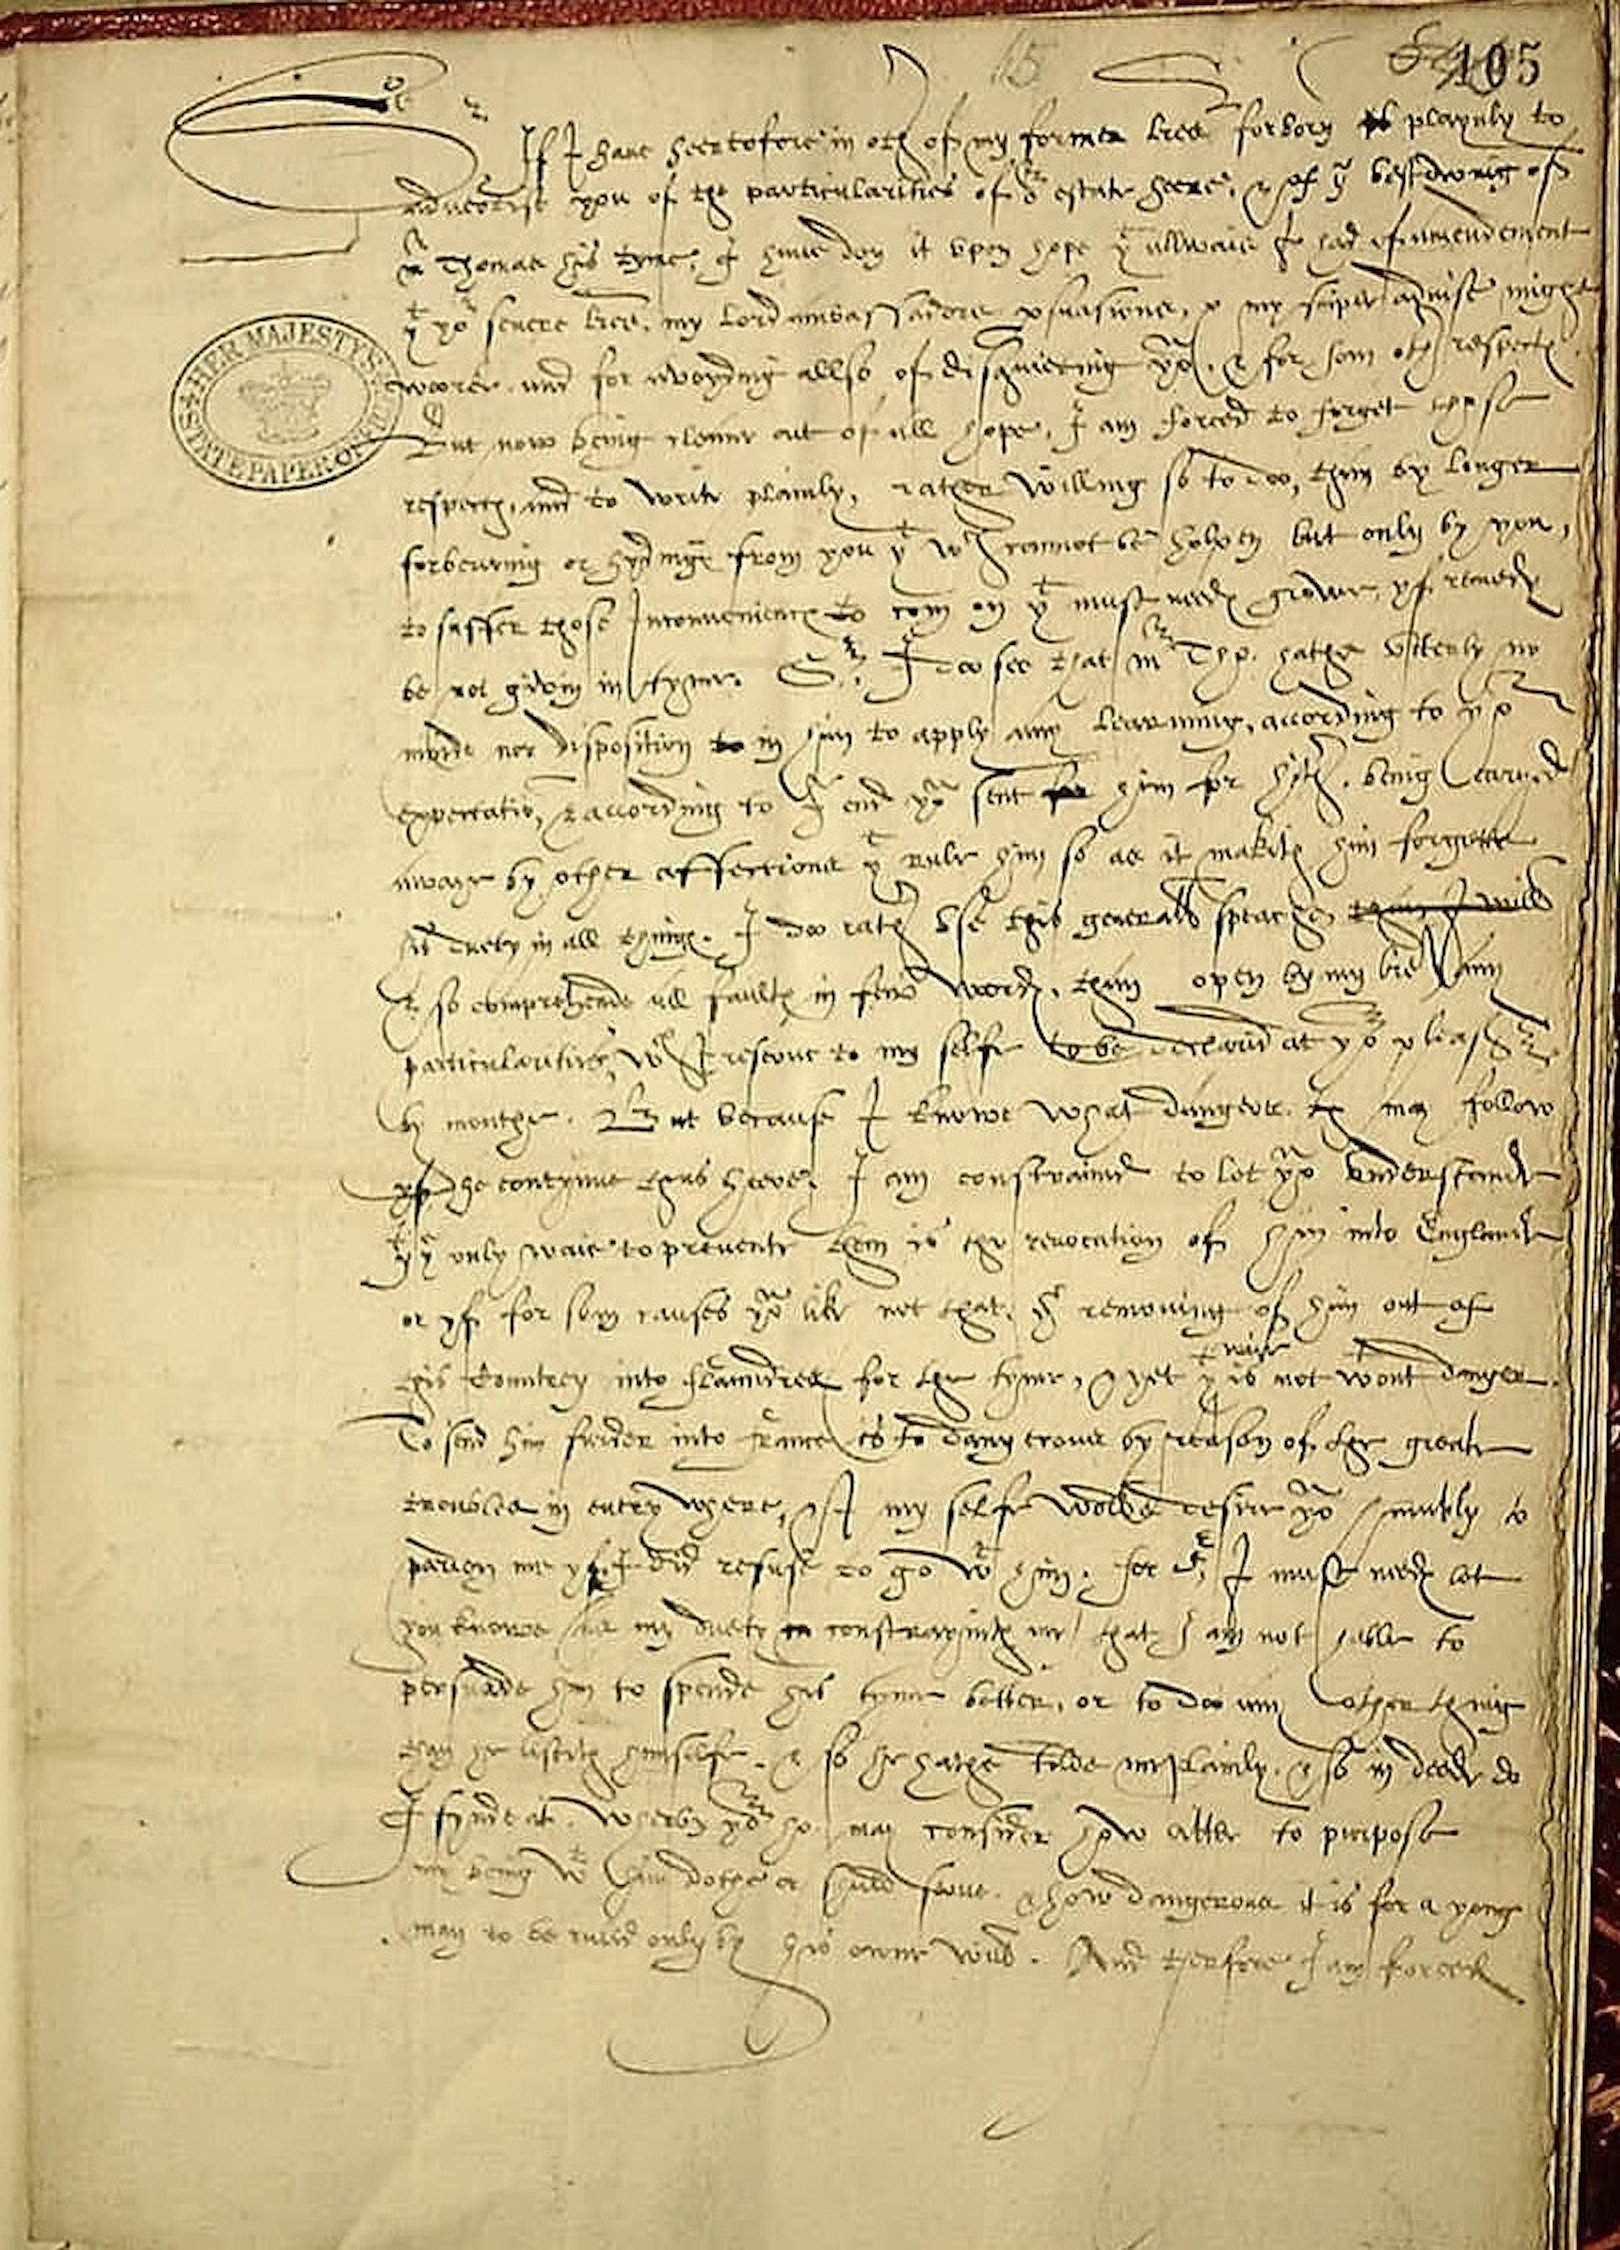 105
15
Sr
If I have heertofore in oth of my former lres forborn so playnly to
advertise you of the particularities of or estate heere, & of ye bestowing of
Mr Thomas his tyme, I have don it upon hope yt allwaie I had of amendement
yt yor severe lres, my Lord ambassadors psuasions, & my simple advise might
woorke, and for avoyding allso of disquieting you, & for som oth respects.
But now being cleane out of all hope, I am forced to forget those
respects, and to write plainly, rather willing so to doo, than by longer
forbearing or hyding from you yt wch cannot be holpen but only by you,
to suffer those Inconvenients to com on yt must needs growe, yf remedy
be not given in tyme. Sr, I doo see that Mr Tho. hathe utterly no
mynde nor disposition in him to apply any learning, according to yor
expectatio, & according to ye end you sent him for hith, being caryed
awaye by other affections yt rule him so as it makith him forgette
his duety in all things. I doo rath use this generall speache
& so comprehende all faults in few words, than open by my lre any
particularities, wch I reserve to my self to be declared at yor pleasure
by mouthe. But because I knowe what dangers may follow
yf he contynue thus heere, I am constrained to let you understande
yt ye only waie to prevente them is the revocation of him into England
or yf for som causes you like not that, ye removing of him out of
this Countrey into Flaundres for the tyme, & yet yt waye is not wtout danger.
To send him furder into France is to dangerous by reason of the greate
troubles in every where, & I my self wolde desire you humbly to
pardon me yf I did refuse to go wt him. for Sr, I must needs let
you knowe as my duety constraynith me that I am not hable to
persuade him to spende his tyme better, or to doo any other thing
than he listith himselfe, & so he hathe tolde me plainly, & so in deede do
I fynde it. Wherby yor ho. may consider how litle to purpose
my being wt him dothe or shall serve. & how dangerous it is for a yong
man to be ruled only by his owne will. And therfore I am forced
HER MAJESTY'S STATE PAPER OFFICE